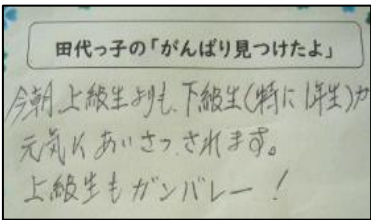 田代っ子の「がんばり見つけたよ」
今朝、上級生よりも、下級生(特に1年生)が
元気にあいさつ、されます。
上級生もガンバレー!